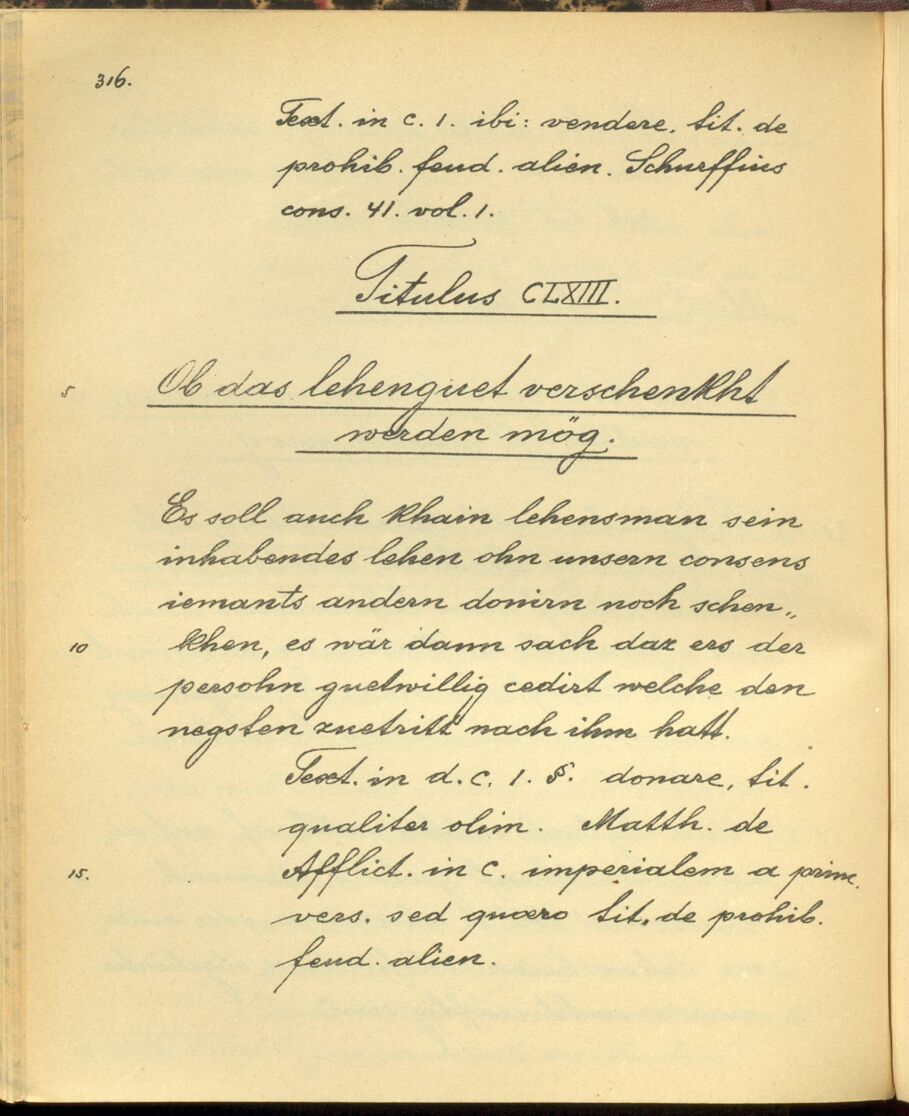 316.
Text. in c. 1. ibi: vendere. tit. de
prohib. feud. alien. Schurffius
cons. 41. vol. 1.
Titulus CLXIII.
5 Ob das lehenguet verschenkht
werden mög.
Es soll auch khain lehensman sein
inhabendes lehen ohn unsern consens
iemants andern donirn noch schen„
10 khen, es wär dann sach daz ers der
persohn guetwillig cedirt welche den
negsten zuetritt nach ihm hatt.
Text. in d. c. 1. §. donare, tit.
qualiter olim. Matth. de
15. Afflict. in c. imperialem a princ.
vers. sed quæro tit. de prohib.
feud. alien.